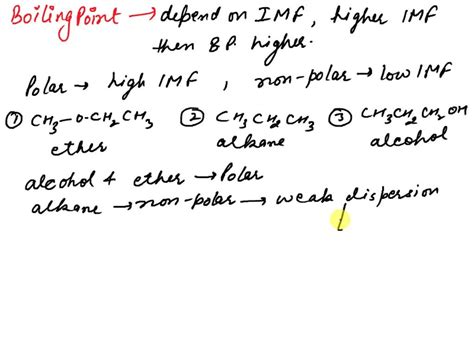 Boiling Point → depend on IMF, higher IMF
then B.P. higher.
Polar → high IMF , non-polar → low IMF
① CH₃-O-CH₂CH₃ ② CH₃CH₂CH₃ ③ CH₃CH₂CH₂OH
ether alkane alcohol
alcohol & ether → Polar
alkane → non-polar → weak dispersion